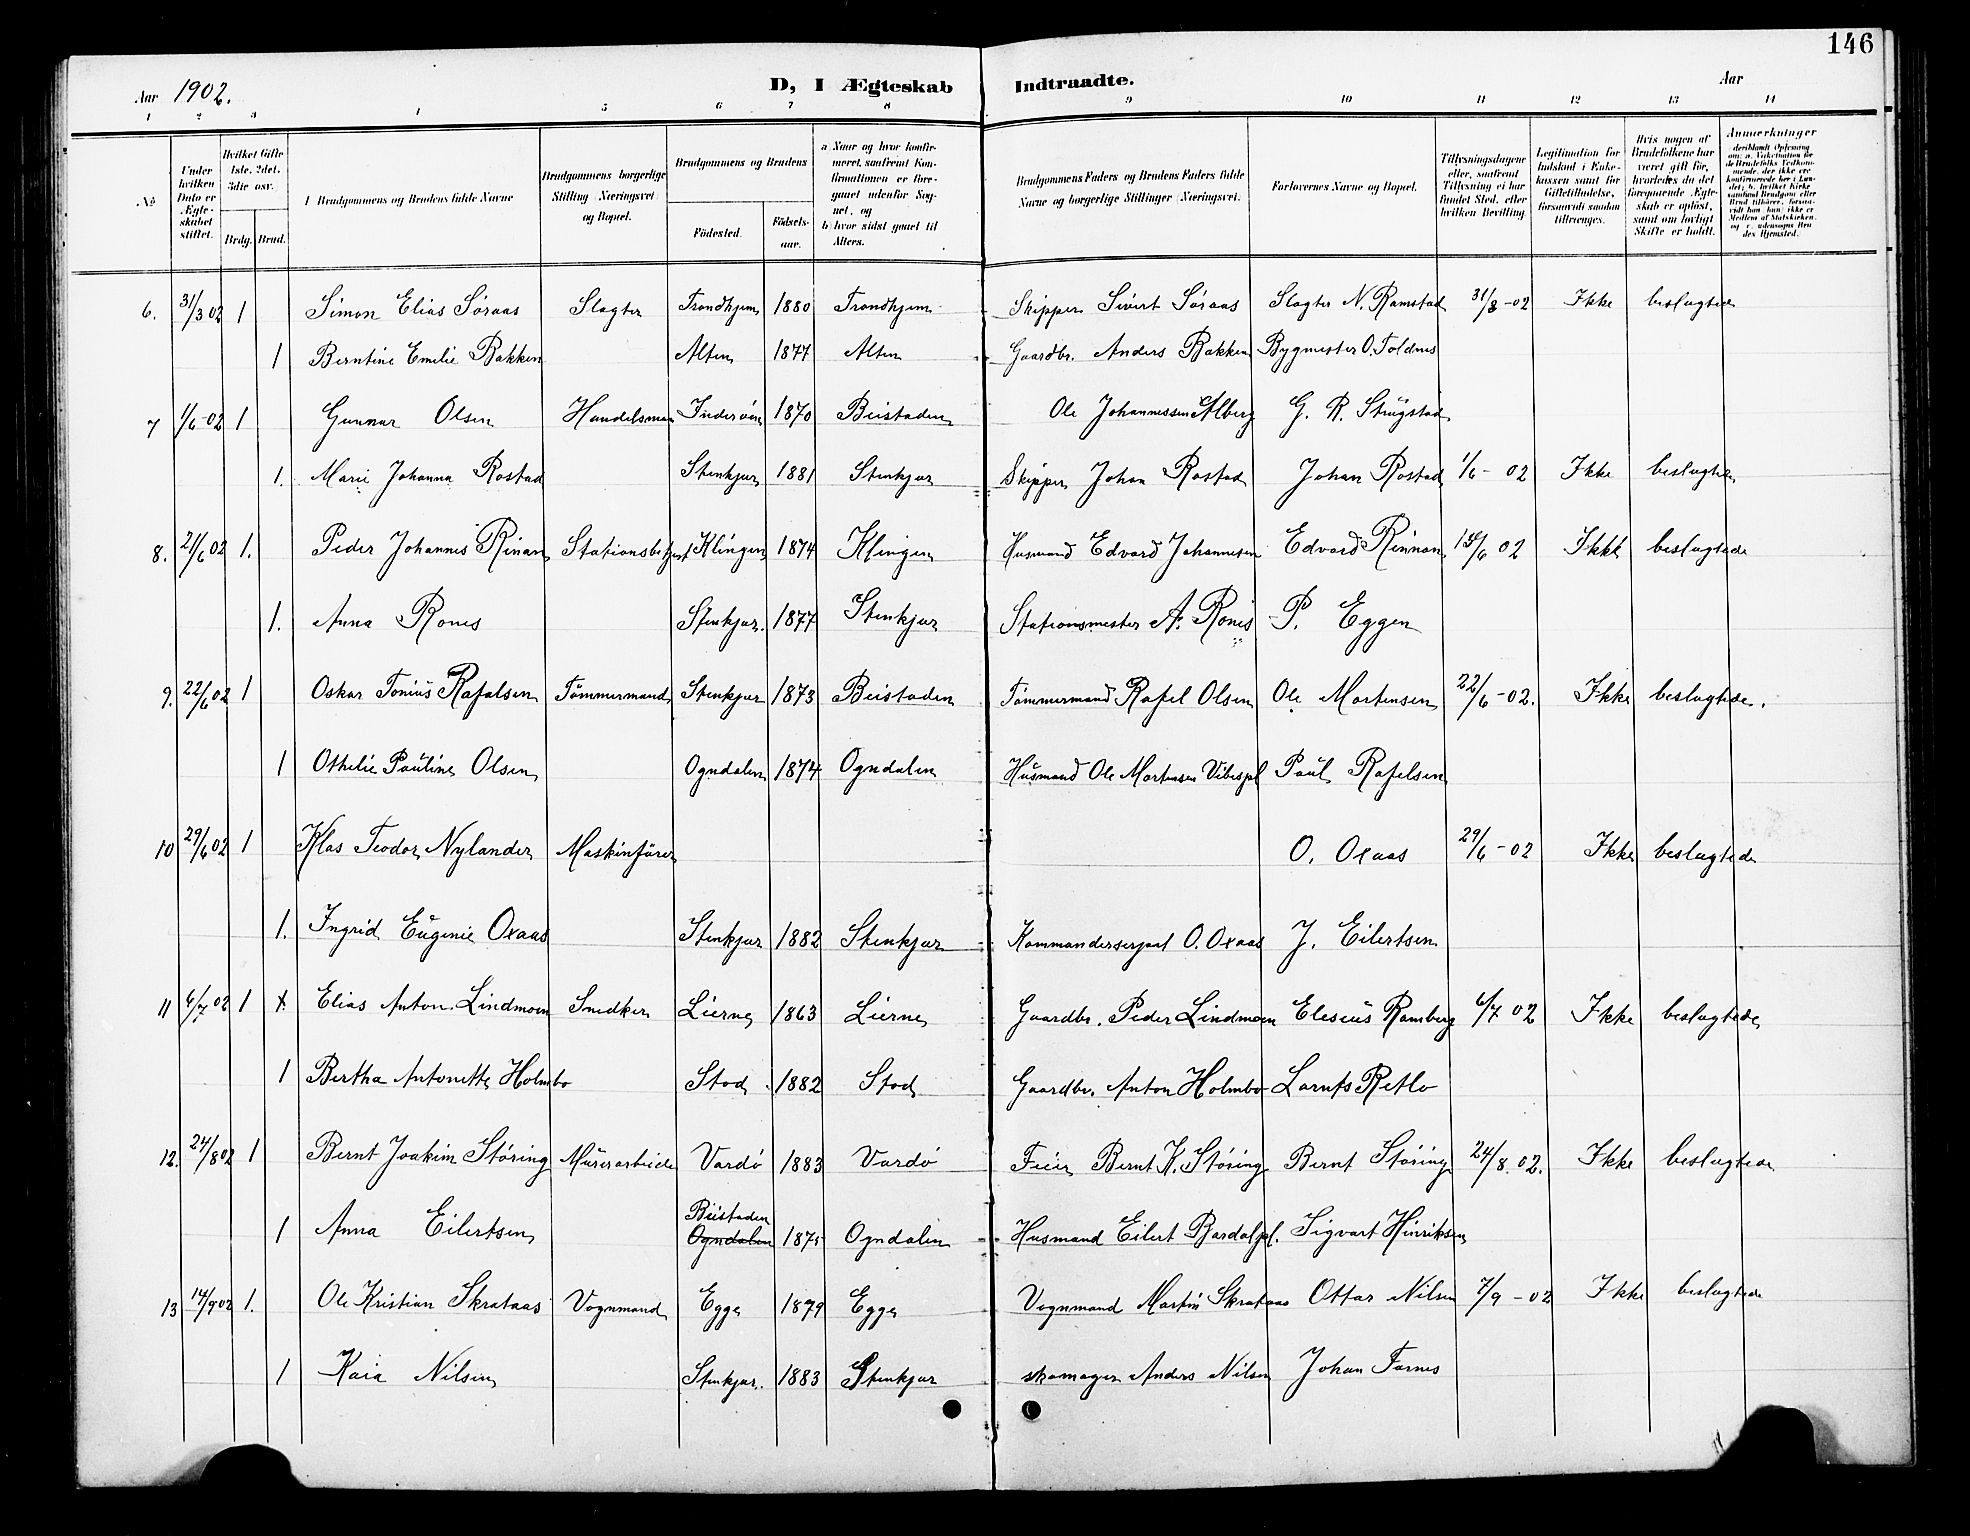 146
Aar 1902. D, I Ægteskab Indtraadte. Aar
1 2 3 4 5 6 7 8 9 10 11 12 13 14
No
Under hvilken Dato er Ægteskabet stiftet.
Hvilket Gifte 1ste. 2det. 3die osv.
Brdg. Brud.
Brudgommens og Brudens fulde Navne
Brudgommens borgerlige Stilling (Næringsvei) og Bopæl.
Brudgommens og Brudens
Födested.
Födselsaar.
a Naar og hvor konfirmeret, saafremt Konfirmationen er foregaaet udenfor Sognet, og
b hvor sidst gaaet til Alters.
Brudgommens Faders og Brudens Faders fulde Navne og borgerlige Stillinger (Næringsvei.
Forlovernes Navne og Bopæl.
Tillysningsdagene eller, saafremt Tillysning ei har fundet Sted, efter hvilken Bevilling.
Legitimation for Indskud i Enkekassen samt for Giftetilladelse, forsaavidt saadan tiltrænges.
Hvis nogen af Brudefolkene har været gift för, hvorledes da det foregaaende Ægteskab er oplöst, samt om lovligt Skifte er holdt.
Anmerkninger
deriblandt Oplysning om: a. Vakcination for de Brudefolks Vedkommende, der ikke ere konfirmerede her i Landet; b. hvilket Kirkesamfund Brudgom eller Brud tilhörer, forsaavidt han (hun) ikke er Medlem af Statskirken, og c. udensogns Brudes Hjemsted.
6. 31/3 02 1 Simon Elias Søraas Slagter Trondhjem 1880 Trondhjem Skipper Sivert Søraas Slagter N. Ramstad 31/3-02 Ikke beslægtede
1 Berntine Emilie Bakken Alten 1877 Alten Gaardbr. Anders Bakken Bygmester O. Foldnes
7 1/6-02 1 Gunnar Olsen Handelsmand Inderøen 1870 Beistaden Ole Johannessen Alberg G. R.
1. Marie Johanna Rostad Stenkjær 1881 Stenkjær Skipper Johan Rostad Johan Rostad 1/6-02 Ikke beslægtede
8. 21/6 02 1. Peder Johannes Rinan Klingen 1874 Klingen Husmand Edvard Johannesen Edvard Rinnan 15/6 02 Ikke beslægtede
1. Anna Rønes Stenkjær. 1877 Stenkjær Stationsmester A. Rønes P. Eggen
9. 22/6 02 1 Oskar Tonius Rafalsen Tømmermand Stenkjær 1873 Beistaden Tømmermand Rafel Olsen Ole Mortensen 22/6-02. Ikke beslægtede.
1 Othelie Pauline Olsen Ogndalen 1874 Ogndalen Husmand Ole Mortensen Vibespl Paul Rafelsen
10 29/6 02 1 Klas Teodor Nylander Maskinfører O. Oxaas 29/6-02 Ikke beslægtede
1. Ingrid Eugenie Oxaas Stenkjær 1882 Stenkjær O. Oxaas J. Eilertsen
11 6/7 02 1 Elias Anton Lindmoen Snedker Lierne 1863 Lierne Gaardbr. Peder Lindmoen Eleseus Romberg 6/7 02 Ikke beslægtede
1 Bertha Antonette Holmbo Stod 1882 Stod Gaardbr. Anton Holmbo Lornts Retlo
12. 24/8 02 1 Bernt Joakim Støring Murerarbeide Vardø 1883 Vardø Feier Bernt K. Støring Bernt Støring 24/8. 02. Ikke beslægtede
Beistaden
1 Anna Eilertsen Ogndalen 1875 Ogndalen Husmand Eilert Bardalpl. Sigvart Hinriksen
13 14/9 02 1. Ole Kristian Skrataas Vognmand Egge 1879 Egge Vognmand Martin Skrataas Ottar Nilsen 7/9-02 Ikke beslægtede
1 Kaia Nilsen Stenkjær. 1883 Stenkjær skomager Anders Nilsen Johan Fornes